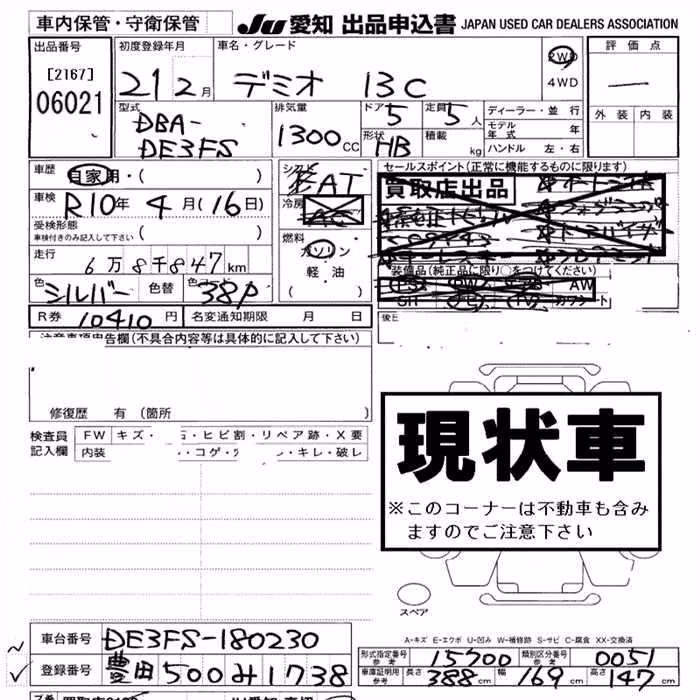 車内保管・守衛保管
JU 愛知 出品申込書 JAPAN USED CAR DEALERS ASSOCIATION
出品番号 初度登録年月 車名・グレード 評価点
[2167]
06021 21 2月 デミオ 13C 2WD 4WD 一
外装 内装
型式 排気量 ドア 定員 ディーラー・並行
DBA- DE3FS 1300cc 5 5人 モデル年式 年
形状 HB 積載 kg ハンドル 左・右
車歴 自家用・( ) シフト AT
セールスポイント(正常に機能するものに限ります)
買取店出品
車検 R10年 4月(16日) 冷房 AC
受検形態
車検付きのみ記入して下さい ( )
燃料 ガソリン 軽油 ( )
走行 6万8千847km
色 シルバー 色替 色コード 38P
装備品(純正品に限り○をつけてください)
PS PW AW
SR ナビ TV カワシート
R券 10410円 名変通知期限 月 日
注意事項申告欄(不具合内容等は具体的に記入して下さい)
修復歴 有(箇所 )
検査員 記入欄 FW キズ・ 石・ヒビ割・リペア跡・X要
内装 ・コゲ・ ・キレ・破レ
現状車
※このコーナーは不動車も含み
ますのでご注意下さい
スペア
A-キズ E-エクボ U-凹み W-補修跡 S-サビ C-腐食 XX-交換済
車台番号 DE3FS-180230
登録番号 豊田 500 み 1738
形式指定番号 参考 15700 類別区分番号 参考 0051
車庫証明用 参考 長さ 388cm 幅 169cm 高さ 147cm